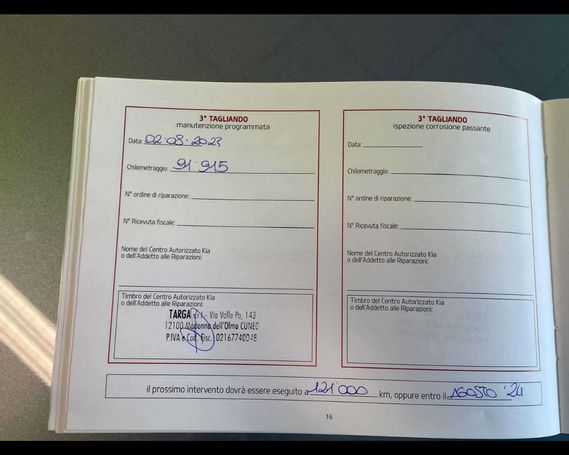 3° TAGLIANDO
manutenzione programmata
Data: 02.08.2023
Chilometraggio: 91 915
N° ordine di riparazione:
N° Ricevuta fiscale:
Nome del Centro Autorizzato Kia
o dell'Addetto alle Riparazioni:
Timbro del Centro Autorizzato Kia
o dell'Addetto alle Riparazioni:
TARGA s.r.l. - Via Valle Po, 143
12100 Madonna dell'Olmo CUNEO
P.IVA e Cod. Fisc.: 02167740048
3° TAGLIANDO
ispezione corrosione passante
Data:
Chilometraggio:
N° ordine di riparazione:
N° Ricevuta fiscale:
Nome del Centro Autorizzato Kia
o dell'Addetto alle Riparazioni:
Timbro del Centro Autorizzato Kia
o dell'Addetto alle Riparazioni:
il prossimo intervento dovrà essere eseguito a 121 000 km, oppure entro il AGOSTO '24
16